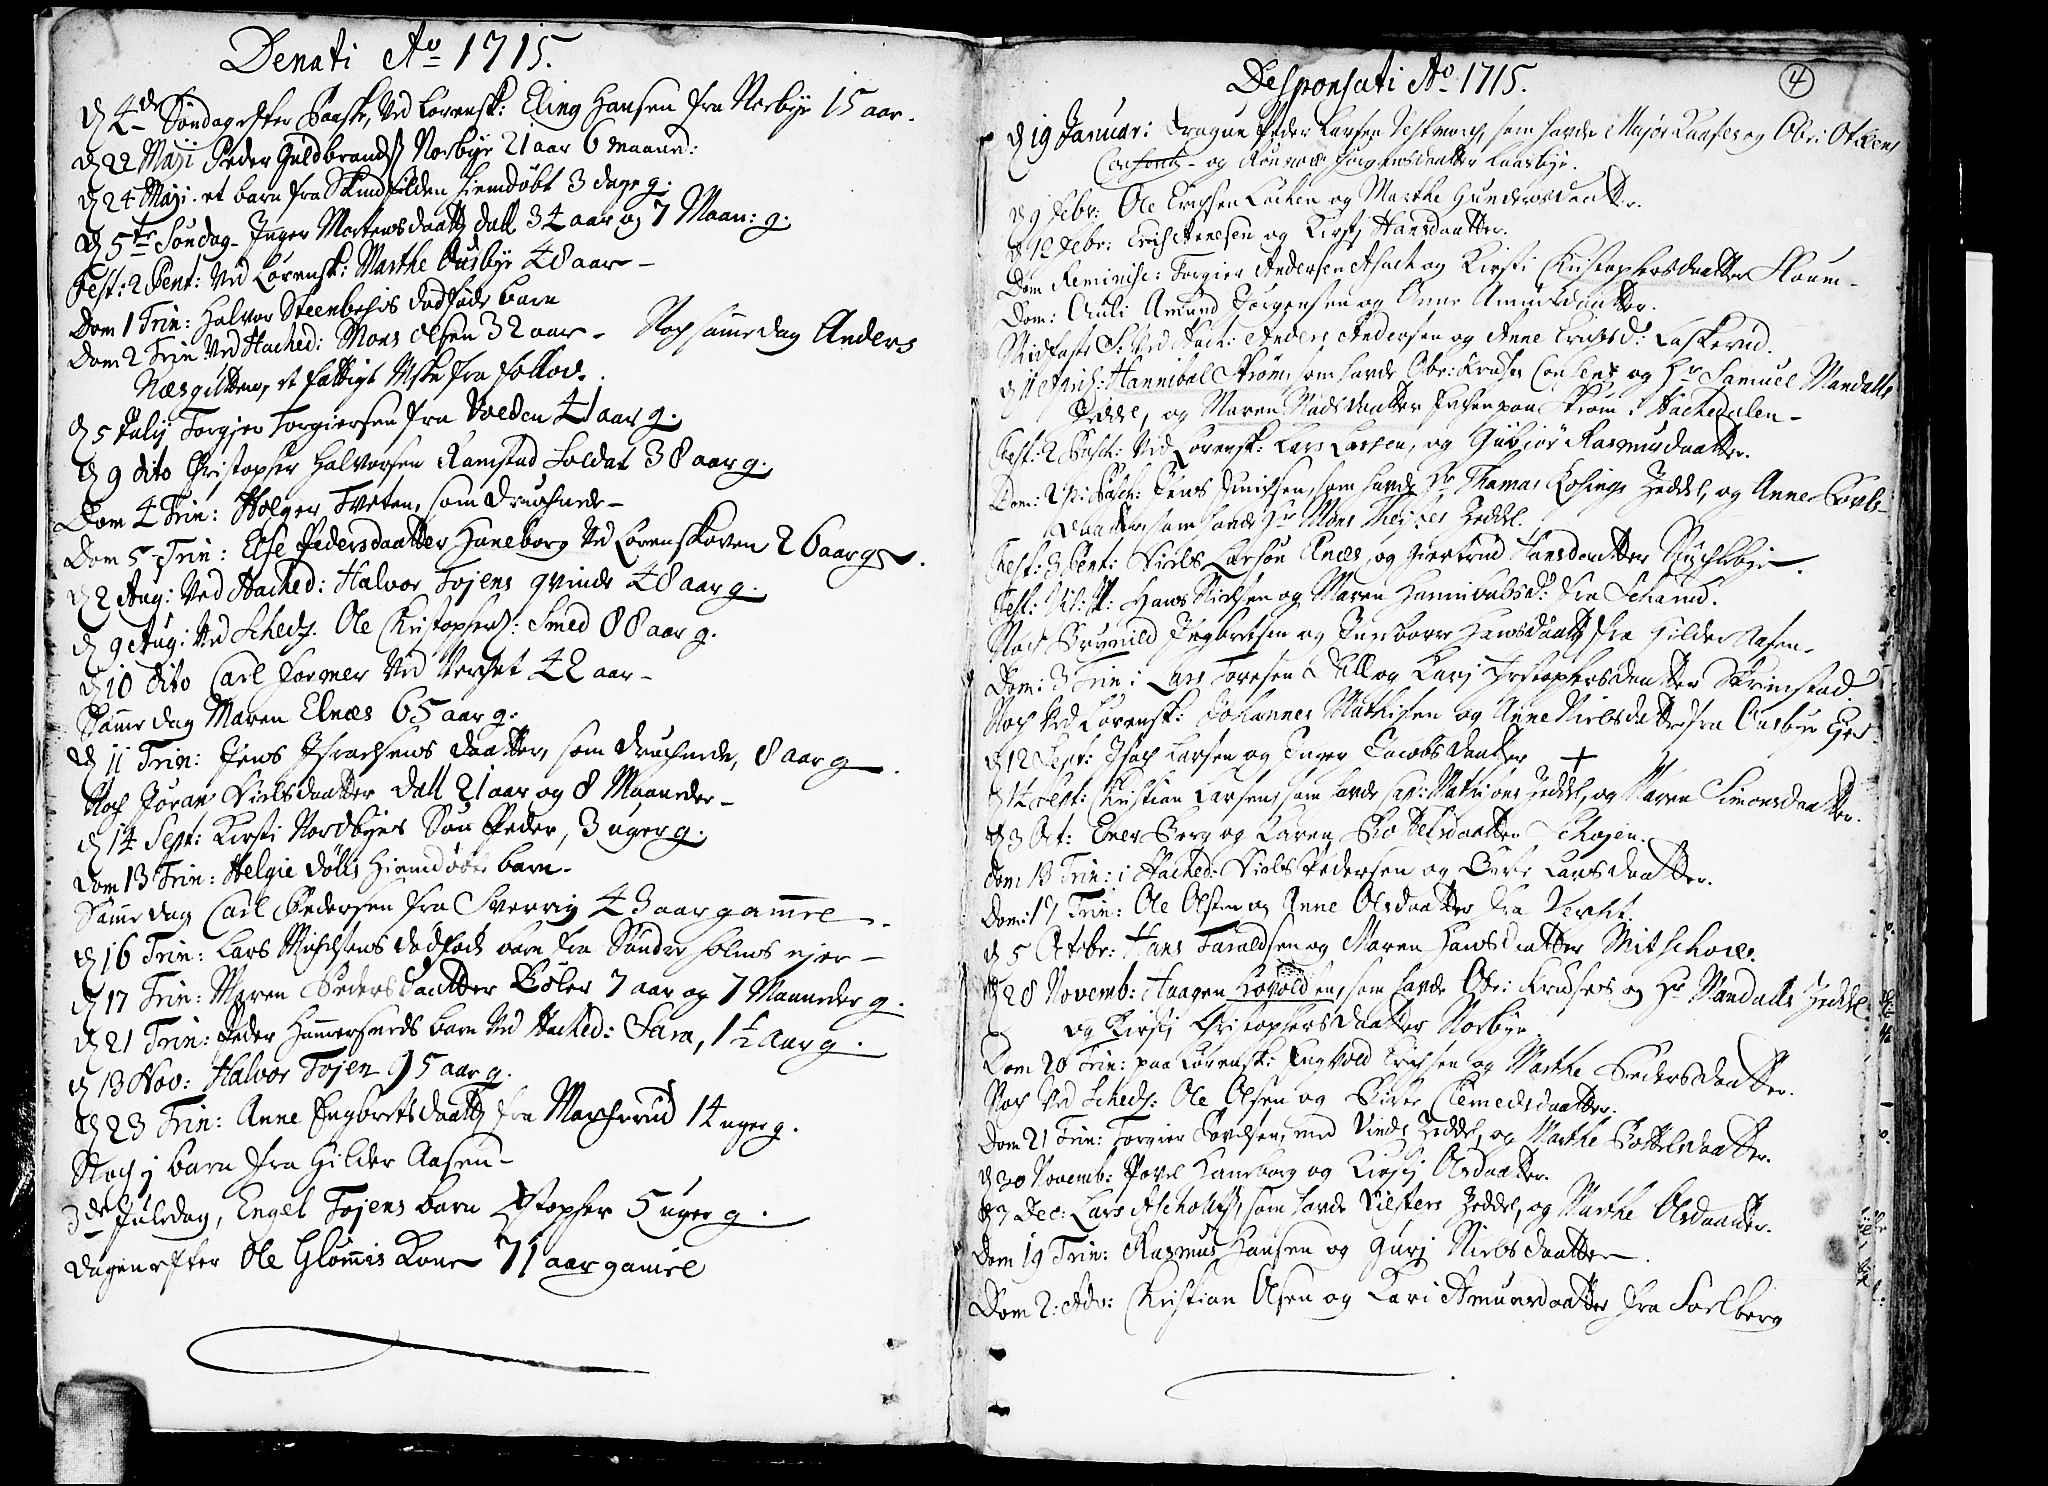 Denati Ao 1715.
D 4de Søndag efter Paaske, Ved Lørensk: Eling Hansen fra Norbÿe 15 aar.
D 22 Maji Peder Guldbrands Norbÿe 21 aar 6 maand:
D 24 Maji et barn fra Skindfilden hiemdøbt 3 dage g.
D 5te Søndag Inger Mortensdaatt dall 34 aar og 7 Maan: g.
Fest: 2 Pent: Ved Lørensk: Marthe Ausbÿe 48 aar
Dom 1 Trin: Halvor Steenbechs dødføde barn
Dom 2 Trin Ved Hached: Mons Olsen 32 aar Noch samme dag Anders
Næsgutten, et fattigt fra Follod.
D 5 Julij Torgier Torgiersen fra Voelden 41 aar g.
D 9 dito Christopher Halvorsen Ramstad Soldat 38 aar g.
Dom 4 Trin: Holger Tveten, som druchnede
Dom 5 Trin: Else Pedersdaatter Haneborg Ved Lørenskoven 26 aar g.
D 2 Aug: Ved Hached: Halvor Tøjens qvinde 48 aar g.
D 9 Aug: Ved Schedz. Ole Christophers: Smed 88 aar g.
D 10 dito Carl Former Ved Verchet 42 aar
Samme dag Maren Elnæs 65 aar g.
D 11 Trin: Jens Israelsens daatter, som druchnede, 8 aar g.
Noch Jøran Nielsdaatter dall 21 aar og 8 Maaneder
D 14 Sept: Kirsti Nordbÿes Søn Peder, 3 uger g.
Dom 13 Trin: Helgie Dølls hiemdøbte barn.
Samme dag Carl Pedersen fra Sverrig 43 aar gammel
D 16 Trin: Lars Michelsens dødfødt barn fra Søndre Holms ejer
D 17 Trin: Maren Pedersdaatter Bøler 7 aar og 7 Maaneder g.
D 21 Trin: Peder Hammerseeds barn Ved Hached: Sara, 1½ aar g.
D 13 Nov: Halvor Tøjen 95 aar g.
D 23 Trin: Anne Engbretsdaatt fra Marcherud 14 uger g.
Noch j barn fra Gilder Aasen
3de Juledag, Engel Tøjens barn Xstopher 5 uger g.
dagen efter Ole Glommis Kone 71 aar gamel
4
Desponsati Ao 1715.
D 19 Januar: Dragun Peder Larsen som hafde Major Kaases og Obr:
Consents og Jørgensdaatter Laasbÿe.
D 9 Febr: Ole Erichsen Løcken og Marthe Gundersdaatter.
D 12 Febr: Erich Arnesen og Kirstj Hansdaatter.
Dom Reminisc: Torgier Andersen og Kirsti Christophersdaatter Skoum
Dom: Amund Jørgensen og Anne Amunsdaatter.
Midfaste S: Ved Hach: Anders Andersen og Anne Erichsd: Laskerud.
D 11 April: Hannibal Strøm, som hafde Obr: Krusses Consent og Hr Samuel Mandalls
Zeddel, og Maren Madsdaatter Strøm i Hachedalen
Fest: 2 Pasch: Ved Lørensk: Lars Larsen, og Gubjør Rasmusdaatter.
Dom: 2 p: Pasch: Jens som hafde Hr Thomas Rosings Zeddel, og Anne Povls
daatter, som hafde Hr Mons Zeddel.
Fest: 3 Pent: Niels Larsøn Elnæs, og Giertrud Hansdaatter
Fest: Hans Nielsen og Maren Hannibalsd: fra Schanid.
Noch Brynild Ingbretsen og Ingeborre Hansdaatt fra Gilder Aasen.
Dom: 3 Trin: Lars Toresen Dall og Karj Xstophersdaatter Skrimstad
Noch Ved Lørensk: Johannes Mathisen og Anne Nielsdatter fra Ausbÿe Ejer
D 12 Sept: Isach Larsen og Inger Jacobsdaatter +
D 14 Sept: Christian Larsen, som hafde Cap: Zeddel, og Maren Simonsdaatter.
D 3 Oct: Ener Berg og Karen Bottelsdaatter Schøjen.
Dom 13 Trin: i Hached: Niels Pedersen og Larsdaatter.
Dom: 17 Trin: Ole Olsen og Anne Olsdaatter fra Verchet.
D 5 Octbr: Hans Taraldsen og Maren Hansdaatter Mitschov.
D 28 Novemb: Haagen som hafde Obr: Krusses og Hr Mandalls Zeddel
og Kirstj Christophersdaatter Norbÿe.
Dom 20 Trin: paa Lørensk: Engvold Erichsen og Marthe Pedersdaatter.
Noch Ved Schedz: Ole Olsen og Clemedsdaatter.
Dom 21 Trin: Torgier Povelsen, med Zeddel, og Marthe Bottelsdaatter.
D 30 Novemb: Povel Haneborg og Kirstj Olsdaatter.
D 7 Dec: Lars som hafde Zeddel, og Marthe Olsdaatter.
Dom 19 Trin: Rasmus Hansen og Gurj Nielsdaatter.
Dom 2: Adv: Christian Olsen og Kari Amunsdaatter fra Farlberg